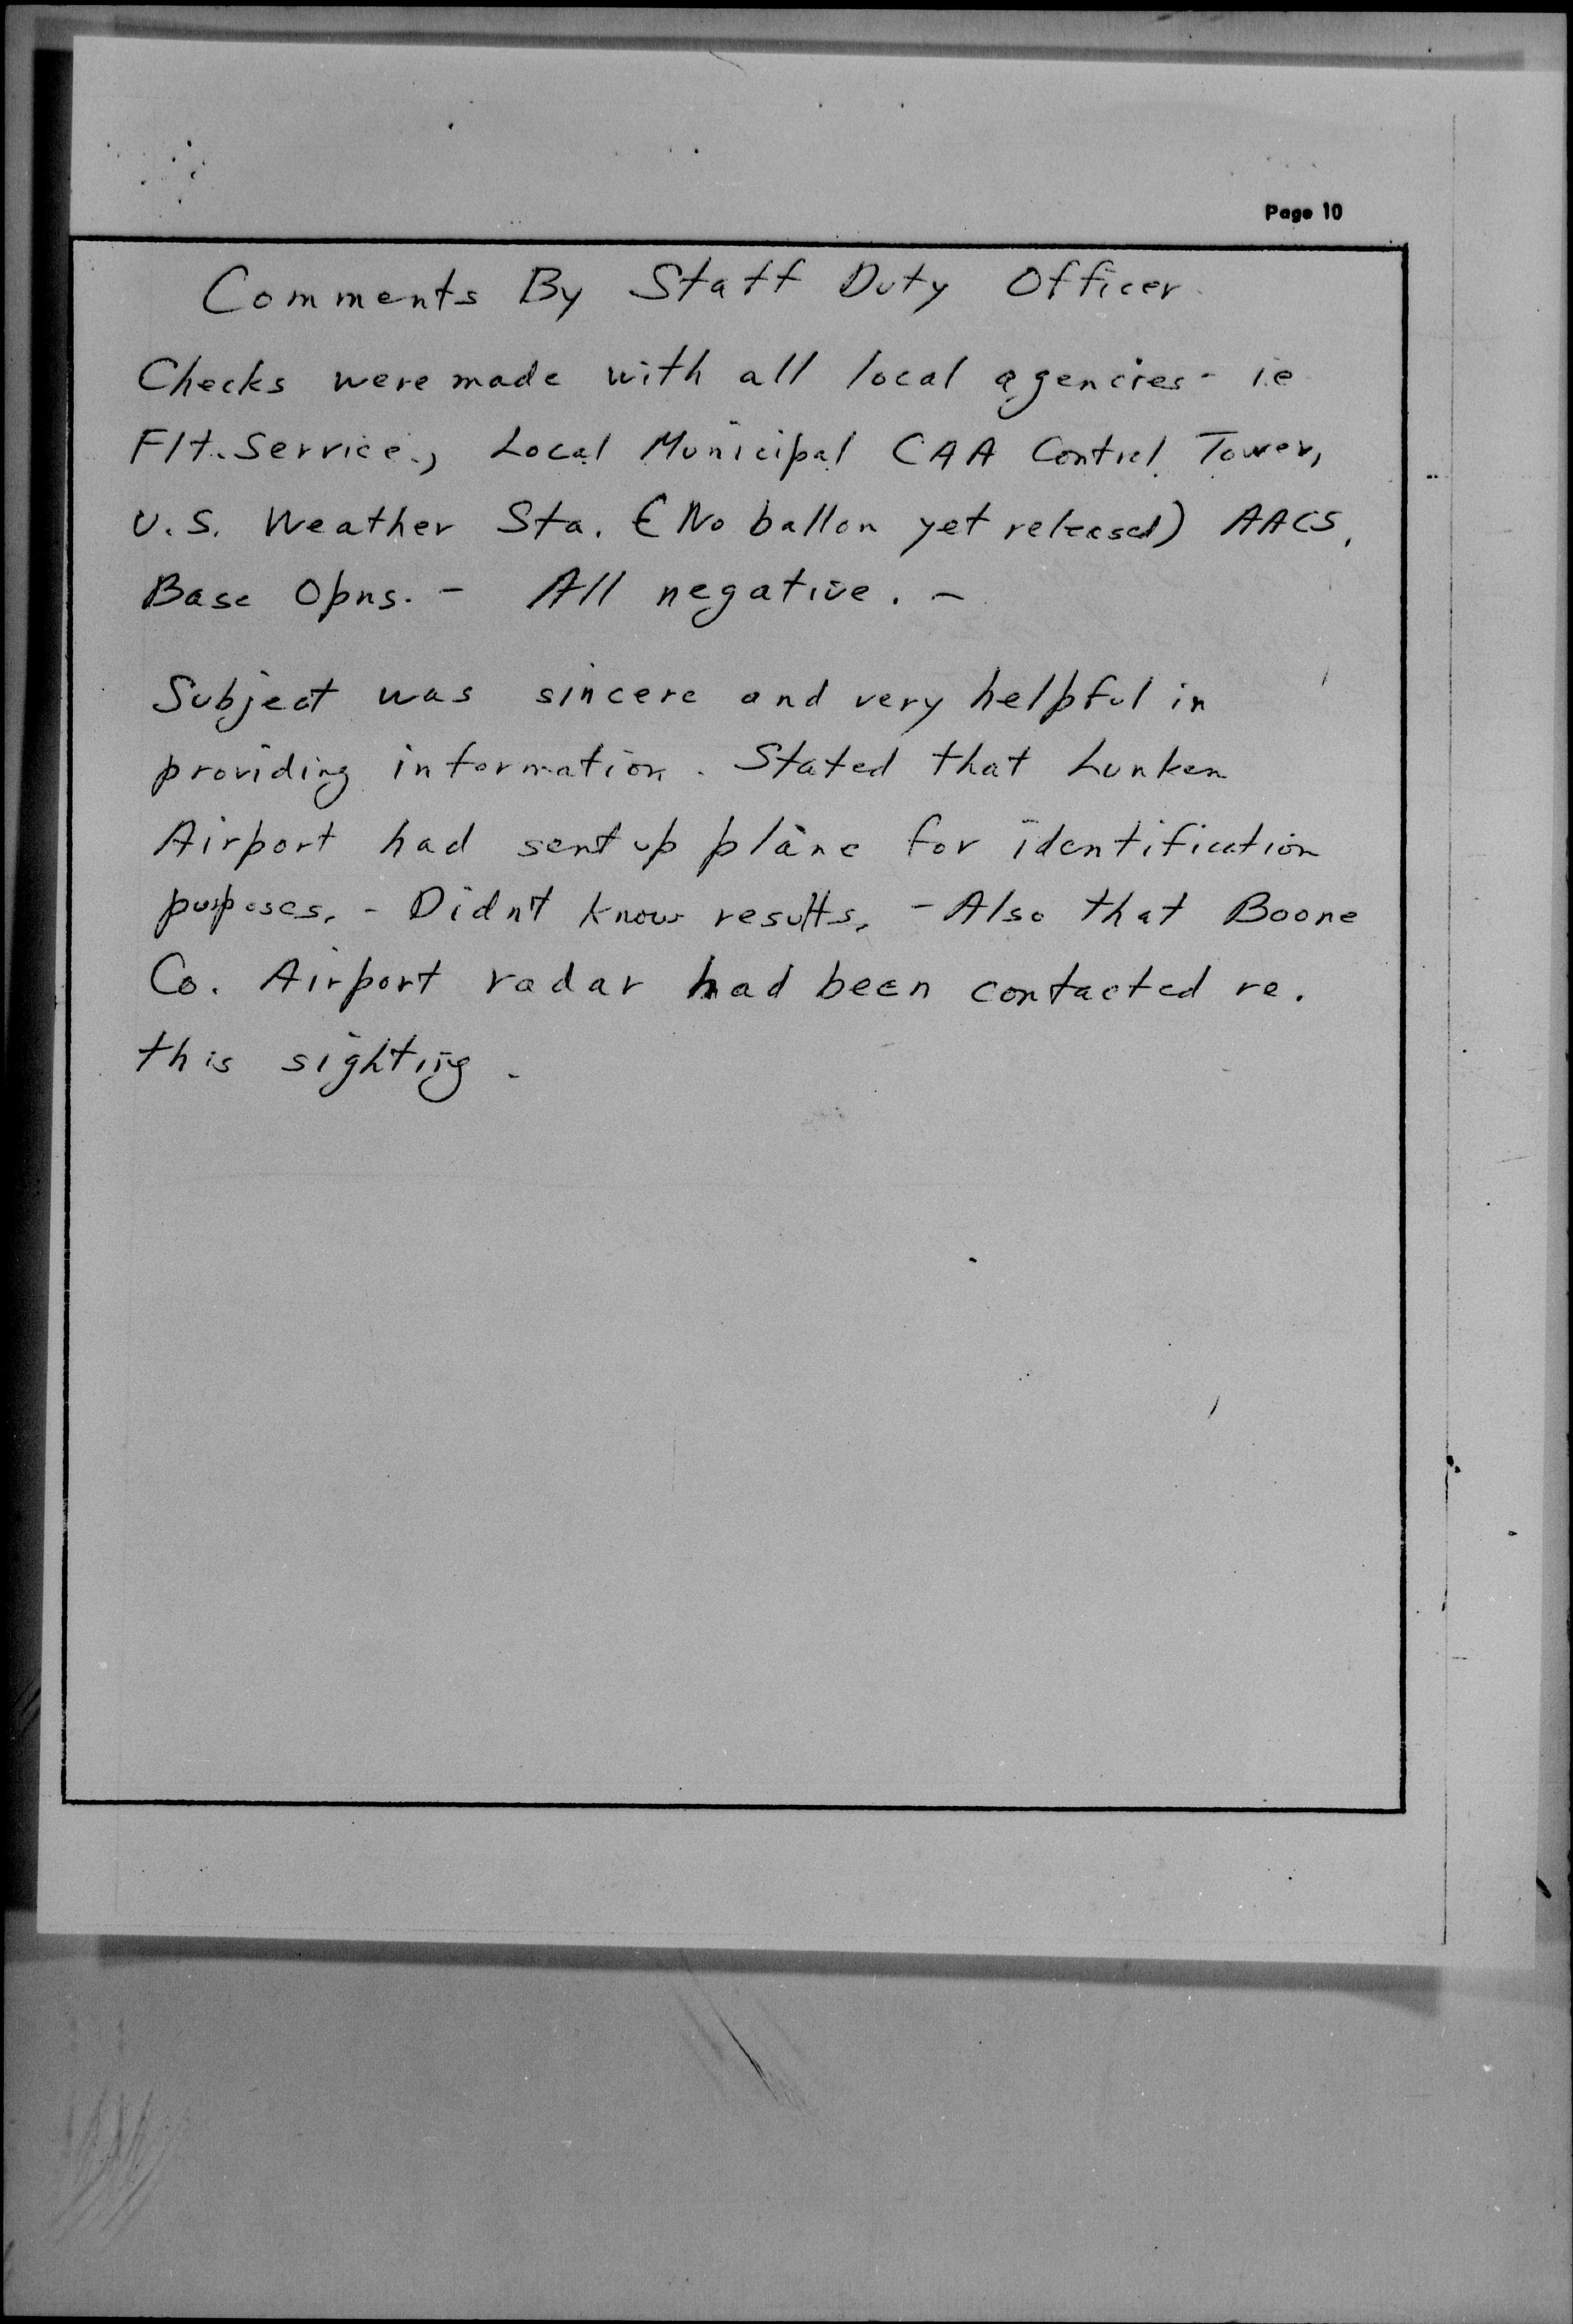 Page 10
Comments By Staff Duty Officer.
Checks were made with all local agencies - i.e
Flt. Service., Local Municipal CAA Control Tower,
U.S. Weather Sta. (No ballon yet released) AACS,
Base Opns. - All negative. -
Subject was sincere and very helpful in
providing information. Stated that Lunken
Airport had sent up plane for identification
purposes. - Didn't know results. - Also that Boone
Co. Airport radar had been contacted re.
this sighting.